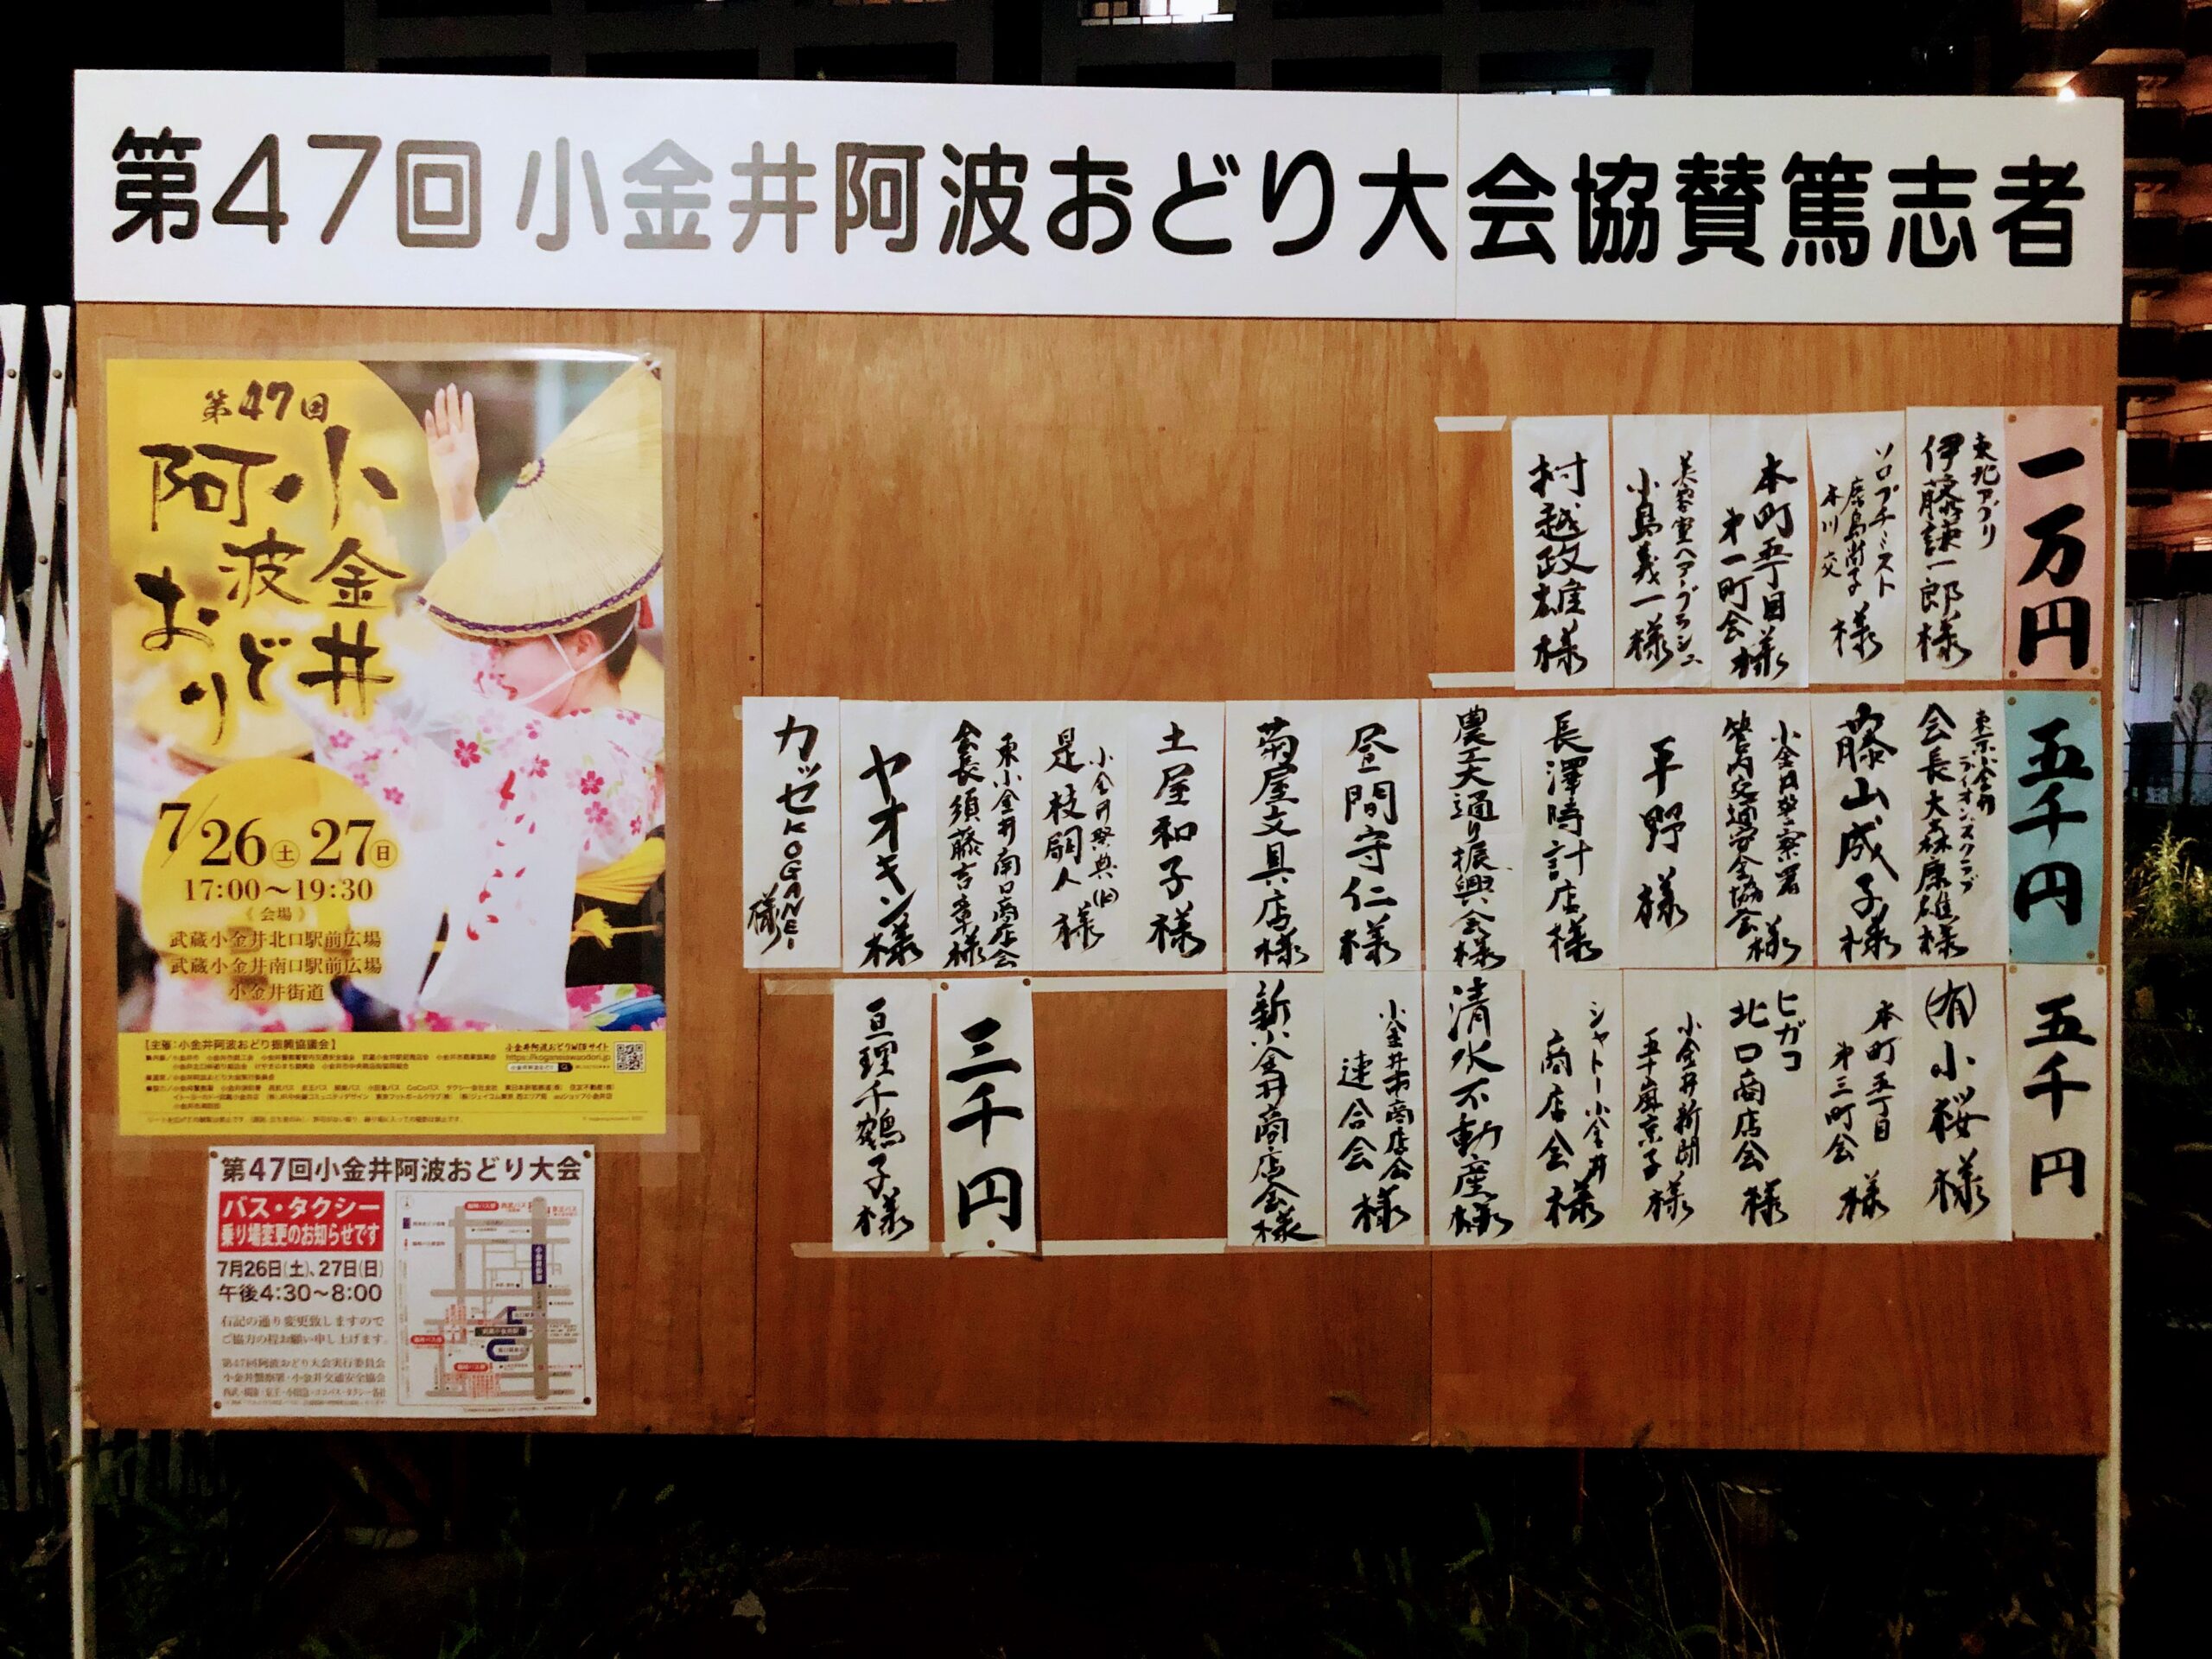 第47回 小金井阿波おどり大会協賛篤志者
第47回
小金井
阿波
おどり
7/26土 27日
17:00〜19:30
《会場》
武蔵小金井北口駅前広場
武蔵小金井南口駅前広場
小金井街道
【主催：小金井阿波おどり振興協議会】
小金井阿波おどりWEBサイト
https://koganeiawaodori.jp
第47回小金井阿波おどり大会
バス・タクシー
乗り場変更のお知らせです
7月26日(土)、27日(日)
午後4:30〜8:00
右記の通り変更致しますので
ご協力の程お願い申し上げます。
第47回阿波おどり大会実行委員会
小金井警察署・小金井交通安全協会
一万円
東北アグリ
伊藤謙一郎様
ソロプチミスト
様
本町五丁目
第一町会様
美容室ヘアーブラシュ
小島義一様
村越政雄様
五千円
東京小金井
ライオンズクラブ
会長大森康雄様
藤山成子様
小金井警察署
管内交通安全協会様
平野様
長澤時計店様
農工大通り振興会様
昼間守仁様
菊屋文具店様
土屋和子様
小金井祭典(株)
是枝嗣人様
東小金井南口商店会
会長須藤吉章様
ヤオキン様
カッセKOGANEI様
五千円
(有)小桜様
本町五丁目
第三町会様
ヒガコ
北口商店会様
小金井新聞
五十嵐京子様
シャトー小金井
商店会様
清水不動産様
小金井市商店会
連合会様
新小金井商店会様
三千円
亘理千鶴子様